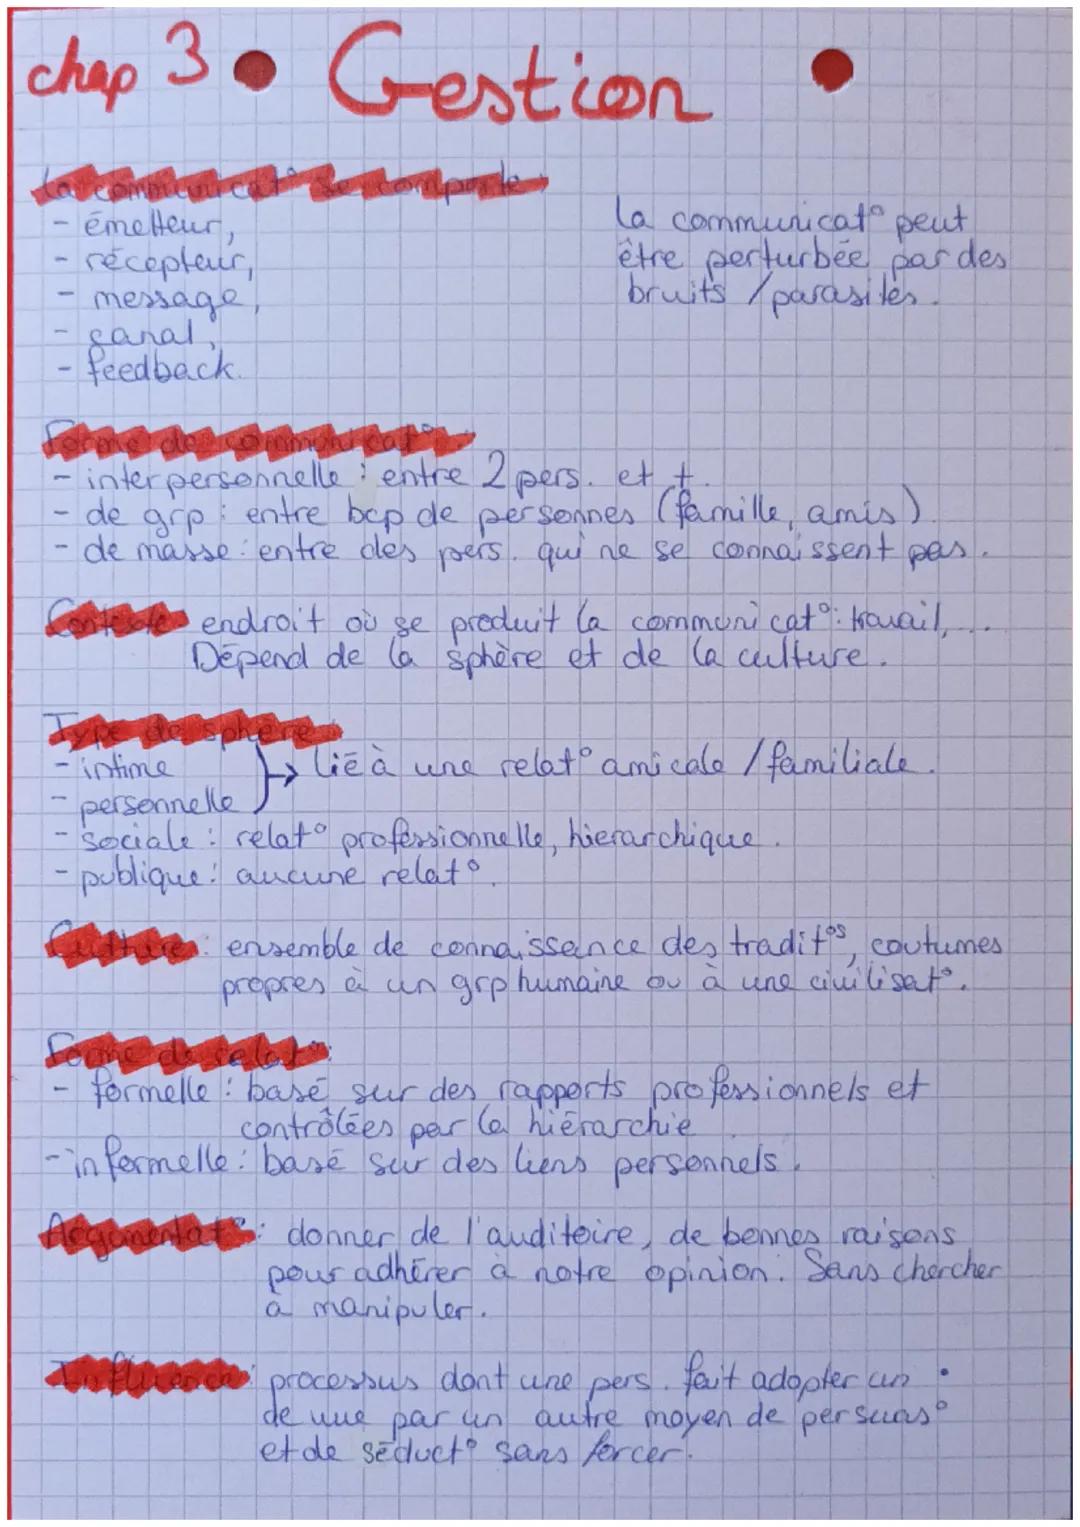 chap 3 • Gestion
La communicat° se comporte :
- émetteur,
- récepteur,
- message,
- canal,
- feedback.
la communicat° peut
être perturbée par des
bruits / parasites.
Forme de communicat° :
- interpersonnelle : entre 2 pers. et +.
- de grp : entre bcp de personnes (famille, amis).
- de masse : entre des pers. qui ne se connaissent pas.
Contexte endroit où se produit la communicat° : travail, ...
Dépend de la sphère et de la culture.
Type de sphère :
- intime
- personnelle } → lié à une relat° amicale / familiale.
- sociale : relat° professionnelle, hierarchique.
- publique : aucune relat°.
Culture : ensemble de connaissance des tradit°s, coutumes
propres à un grp humaine ou à une civilisat°.
Forme de relat° :
- formelle : basé sur des rapports professionnels et
contrôlées par la hiérarchie
- informelle : basé sur des liens personnels.
Argumentat° : donner de l'auditoire, de bonnes raisons
pour adhérer à notre opinion. Sans chercher
à manipuler.
Influence : processus dont une pers. fait adopter un •
de vue par un autre moyen de persuas°
et de séduct° sans forcer.